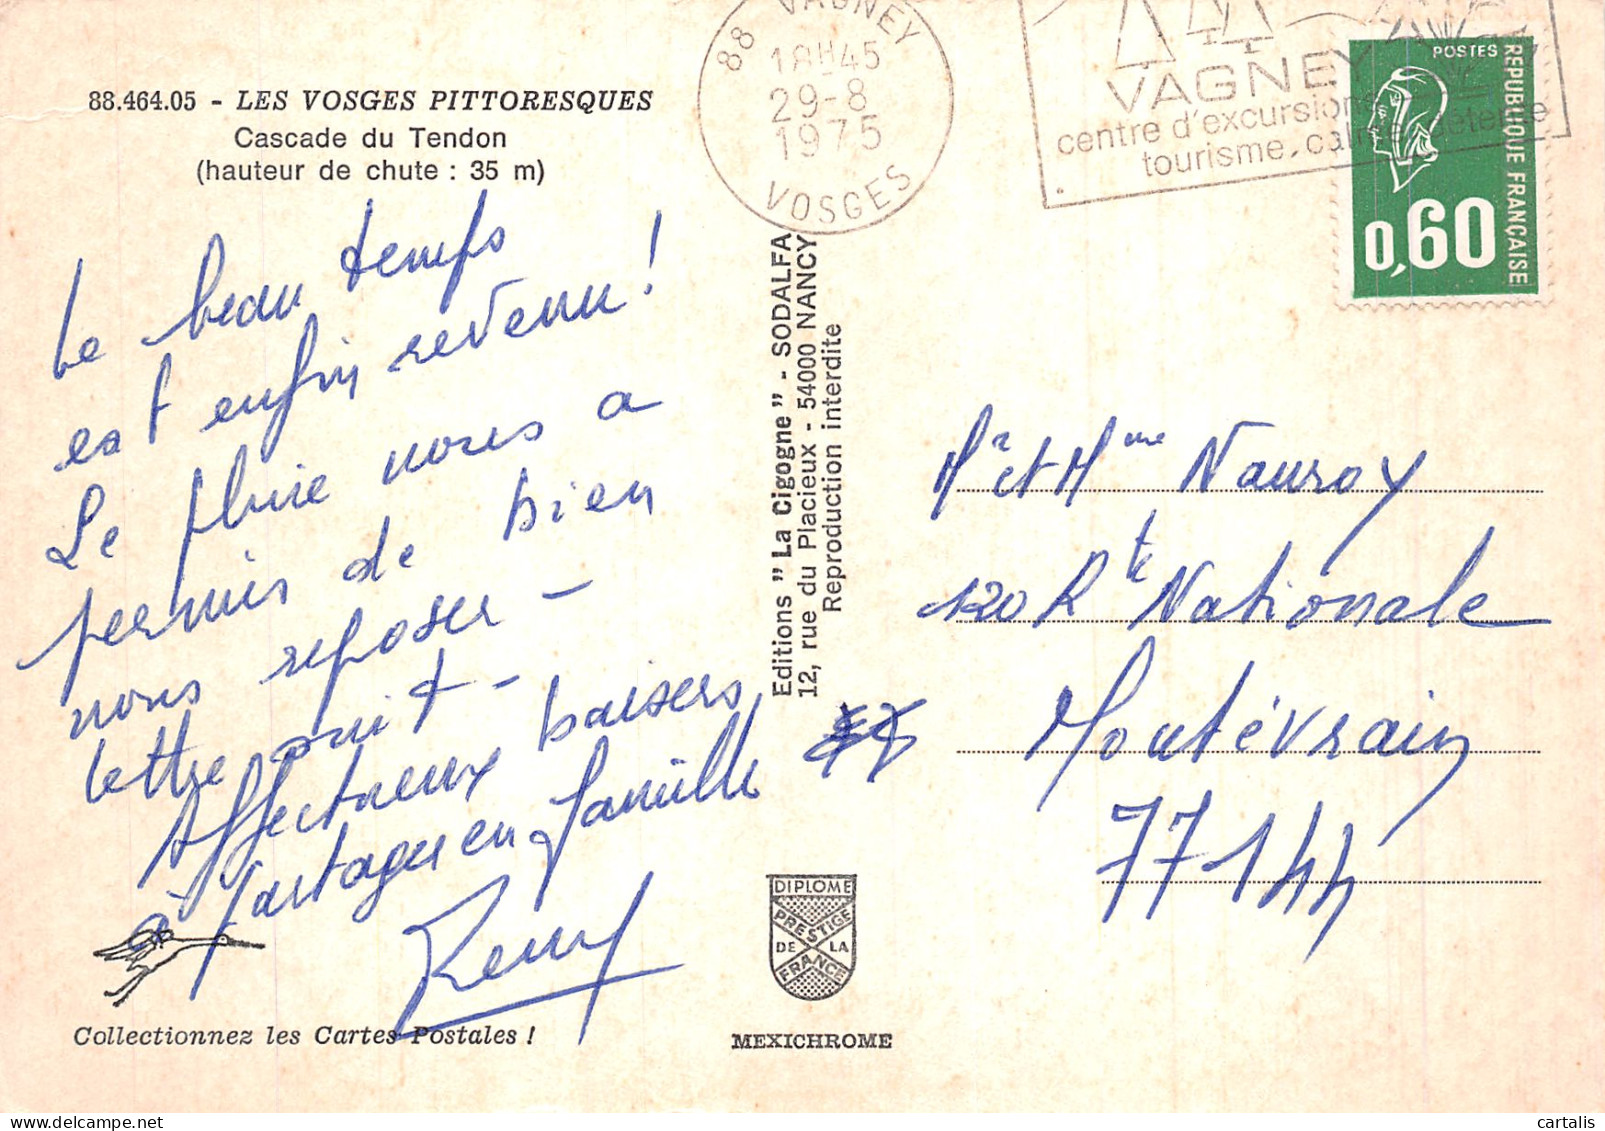 88.464.05 - LES VOSGES PITTORESQUES
Cascade du Tendon
(hauteur de chute : 35 m)
Le beau temps
est enfin revenu !
Le pluie nous a
permis de bien
nous reposer -
lettre suit -
Affectueux baisers
à partager en famille
Remy
Collectionnez les Cartes Postales !
Editions " La Cigogne " - SODALFA
12, rue du Placieux - 54000 NANCY
Reproduction interdite
DIPLOME
PRESTIGE
DE LA
FRANCE
MEXICHROME
88 VAGNEY
18H45
29-8
1975
VOSGES
VAGNEY
centre d'excursions
tourisme, calme, détente
POSTES
REPUBLIQUE FRANÇAISE
0,60
Mr et Mme Nauroy
120 Rte Nationale
Montévrain
77144
cartalis
www.delcampe.net